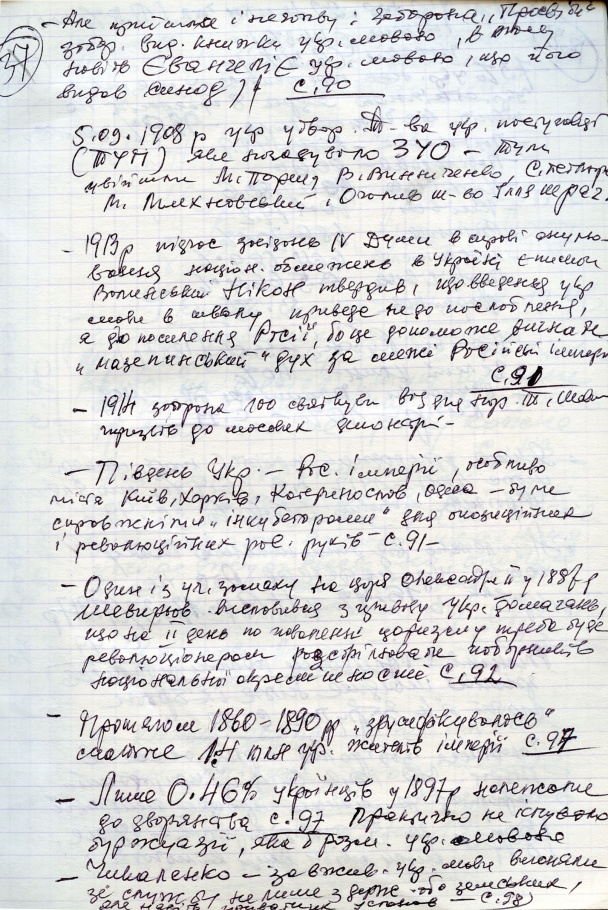 37
- Але прийшла і : заборона „Просвіти"
забор. вид. книжки укр. мовою, в тому
навіть Євангеліє укр. мовою, що його
видав синод) с. 90
5.09.1908 р укр утвор. Т-ва укр. поступовців
(ТУП) яке ЗУО - туди
увійшли М. Порш, В. Винниченко, С. Петлюра
М. Міхновський, Очолив т-во Ілля Шраг.
- 1913 р під час засідань IV Думи в справі анулю-
вання націон. обмежень в Україні єпископ
Волинський Нікон твердив, що введення укр
мови в школу приведе не до послаблення,
а до посилення Росії, бо це допоможе вигнати
„мазепинський" дух за межі Російської імперії
с. 91
- 1914 заборона 100 святкув від дня нар. Т. Шевч.
призвів до масових
- Південь Укр. - Рос. імперії, особливо
міста Київ, Харків, Катеринослав, Одеса - були
справжніми „інкубаторами" для опозиційних
і революційних рос. рухів - с. 91-
- Один із уч. замаху на царя Олександра у 1887 р
Шевирьов висловився з приводу укр. домагань,
що на II день по поваленні царизму треба буде
революціонерам розстрілювати поборників
національної окремішності с. 92
- Протягом 1860-1890 рр „зрусифікувалось"
1,4 млн укр. жителів імперії с. 97
- Лише 0.46% українців у 1897 р належали
до дворянства с. 97 Практично не існувало
буржуазії, яка б розм. укр. мовою
- Чикаленко - за вжив. укр. мови виганяли
зі служби не лише з держ. або земських,
але навіть приватних установ - с. 98)